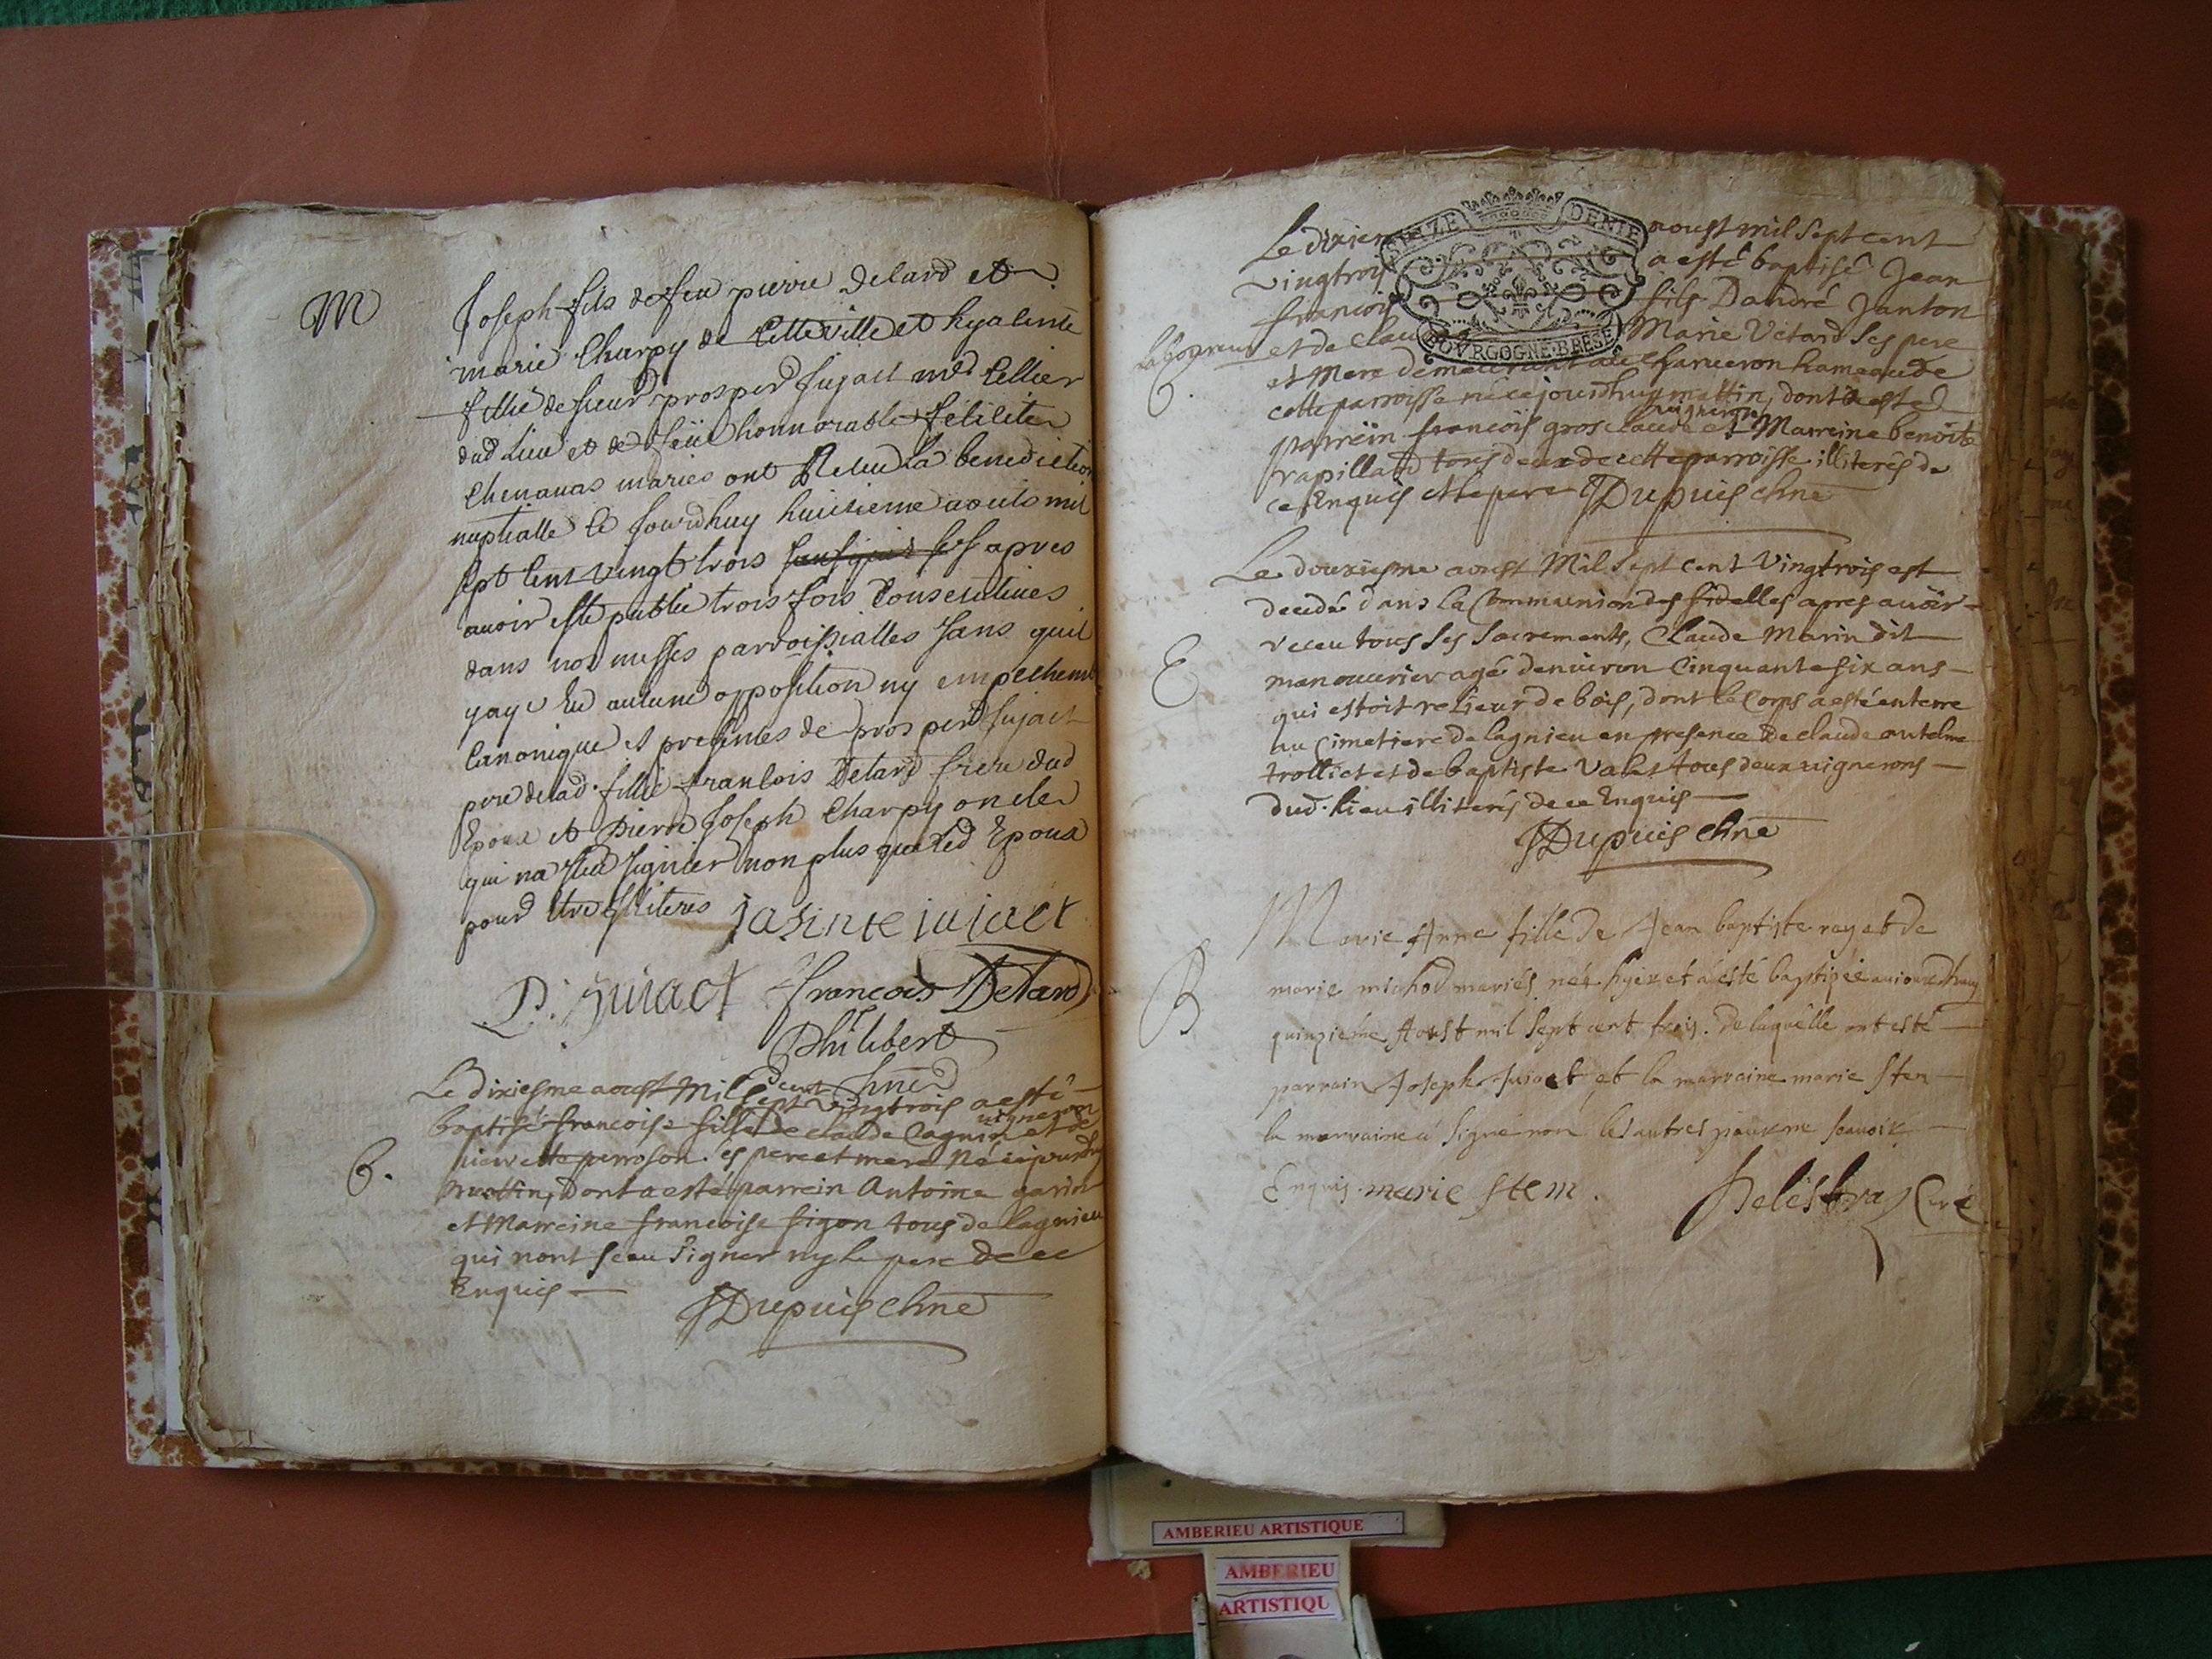 M
Joseph fils de feu pierre Delard et
marie Charpy de Cette ville et hyacinte
fillie de sieur prosper Jujact md Cellier
dud Lieu et de feüe honnorable felicite
Chenavas mariés ont Receu La benediction
nuptialle Ce Jourdhuy huictieme aouts mil
sept Cent vingt trois apres
avoir este publié trois fois Consecutives
dans nos messes parroissialles sans quil
y aye Eu aulcune opposition ny empechemt
Canonique et presences de prosper Jujact
pere delad. fillie francois Delard frere dud
Epoux et Pierre Joseph Charpy oncle
qui na sceu signier non plus que led Epoux
pour Etre illiteres
jasinte jujact
P. Jujact francois Delard
Philibert
Le dixiesme aoust Mil sept cent vingtrois a esté
vigneron
baptisé francoise fille de claude Cagnin et de
pierrette perroson ses pere et mere Née ajourdhuy
B.
mattin, Dont a esté parrein Antoine garin
et Marreine francoise figon tous de lagnieu
qui nont sceu signer ny le pere de ce
Enquis
Dupuis
Le dixiem aoust mil sept cent
vingtrois a esté baptisé Jean
francois fils Dandré Janton
QUINZE DENIE
BOVRGOGNE·BRESSE
laboureur et de Clau Marie Vétard ses pere
et Mere demeurant au Charveron hameau de
B.
cette parroisse né cejourdhuy mattin, dont a esté
vigneron
parrein francois gros claude et Marreine benoite
trapillard tous deux de cette parroisse illiterés de
ce Enquis et le pere Dupuis
Le douziesme aoust Mil sept cent Vingtrois est
decedé dans la Communion des fidelles apres avoir
receu tous ses sacrements, Claude Marin dit
E
manouvrier agé denviron Cinquante six ans
qui estoit relieur de bois, dont le Corps a esté enterre
au Cimetiere de lagnieu en presence de claude antelme
trolliet et de baptiste Valet tous deux vignerons
dud. lieu illiterés de ce Enquis
Dupuis
Marie Anne fille de Jean baptiste rey et de
B
marie michod mariés née hyer et a esté baptisée aujourdhuy
quinzieme Aoust mil sept cent trois. De laquelle ont esté
parrain Joseph Jujact, et la marraine marie Stem
la marraine a signé non les autres pour ne scavoir
Enquis. marie stem. Delestra Curé
AMBERIEU ARTISTIQUE
AMBERIEU
ARTISTIQU